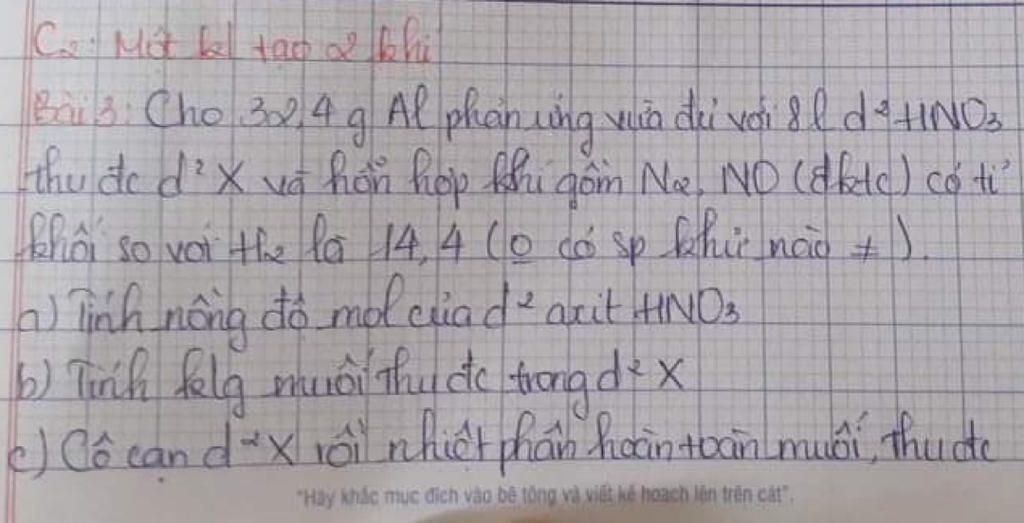 C2: Một kl tạo 2 khí
Bài 3: Cho 32,4 g Al phản ứng vừa đủ với 8l d² HNO3
thu đc d² X và hỗn hợp khí gồm N2, NO (đktc) có tỉ
khối so với H2 là 14,4 (o có sp khử nào ≠).
a) Tính nồng độ mol của d² axit HNO3
b) Tính klg muối thu đc trong d² X
c) Cô cạn d² X rồi nhiệt phân hoàn toàn muối, thu đc
"Hãy khắc mục đích vào bê tông và viết kế hoạch lên trên cát".